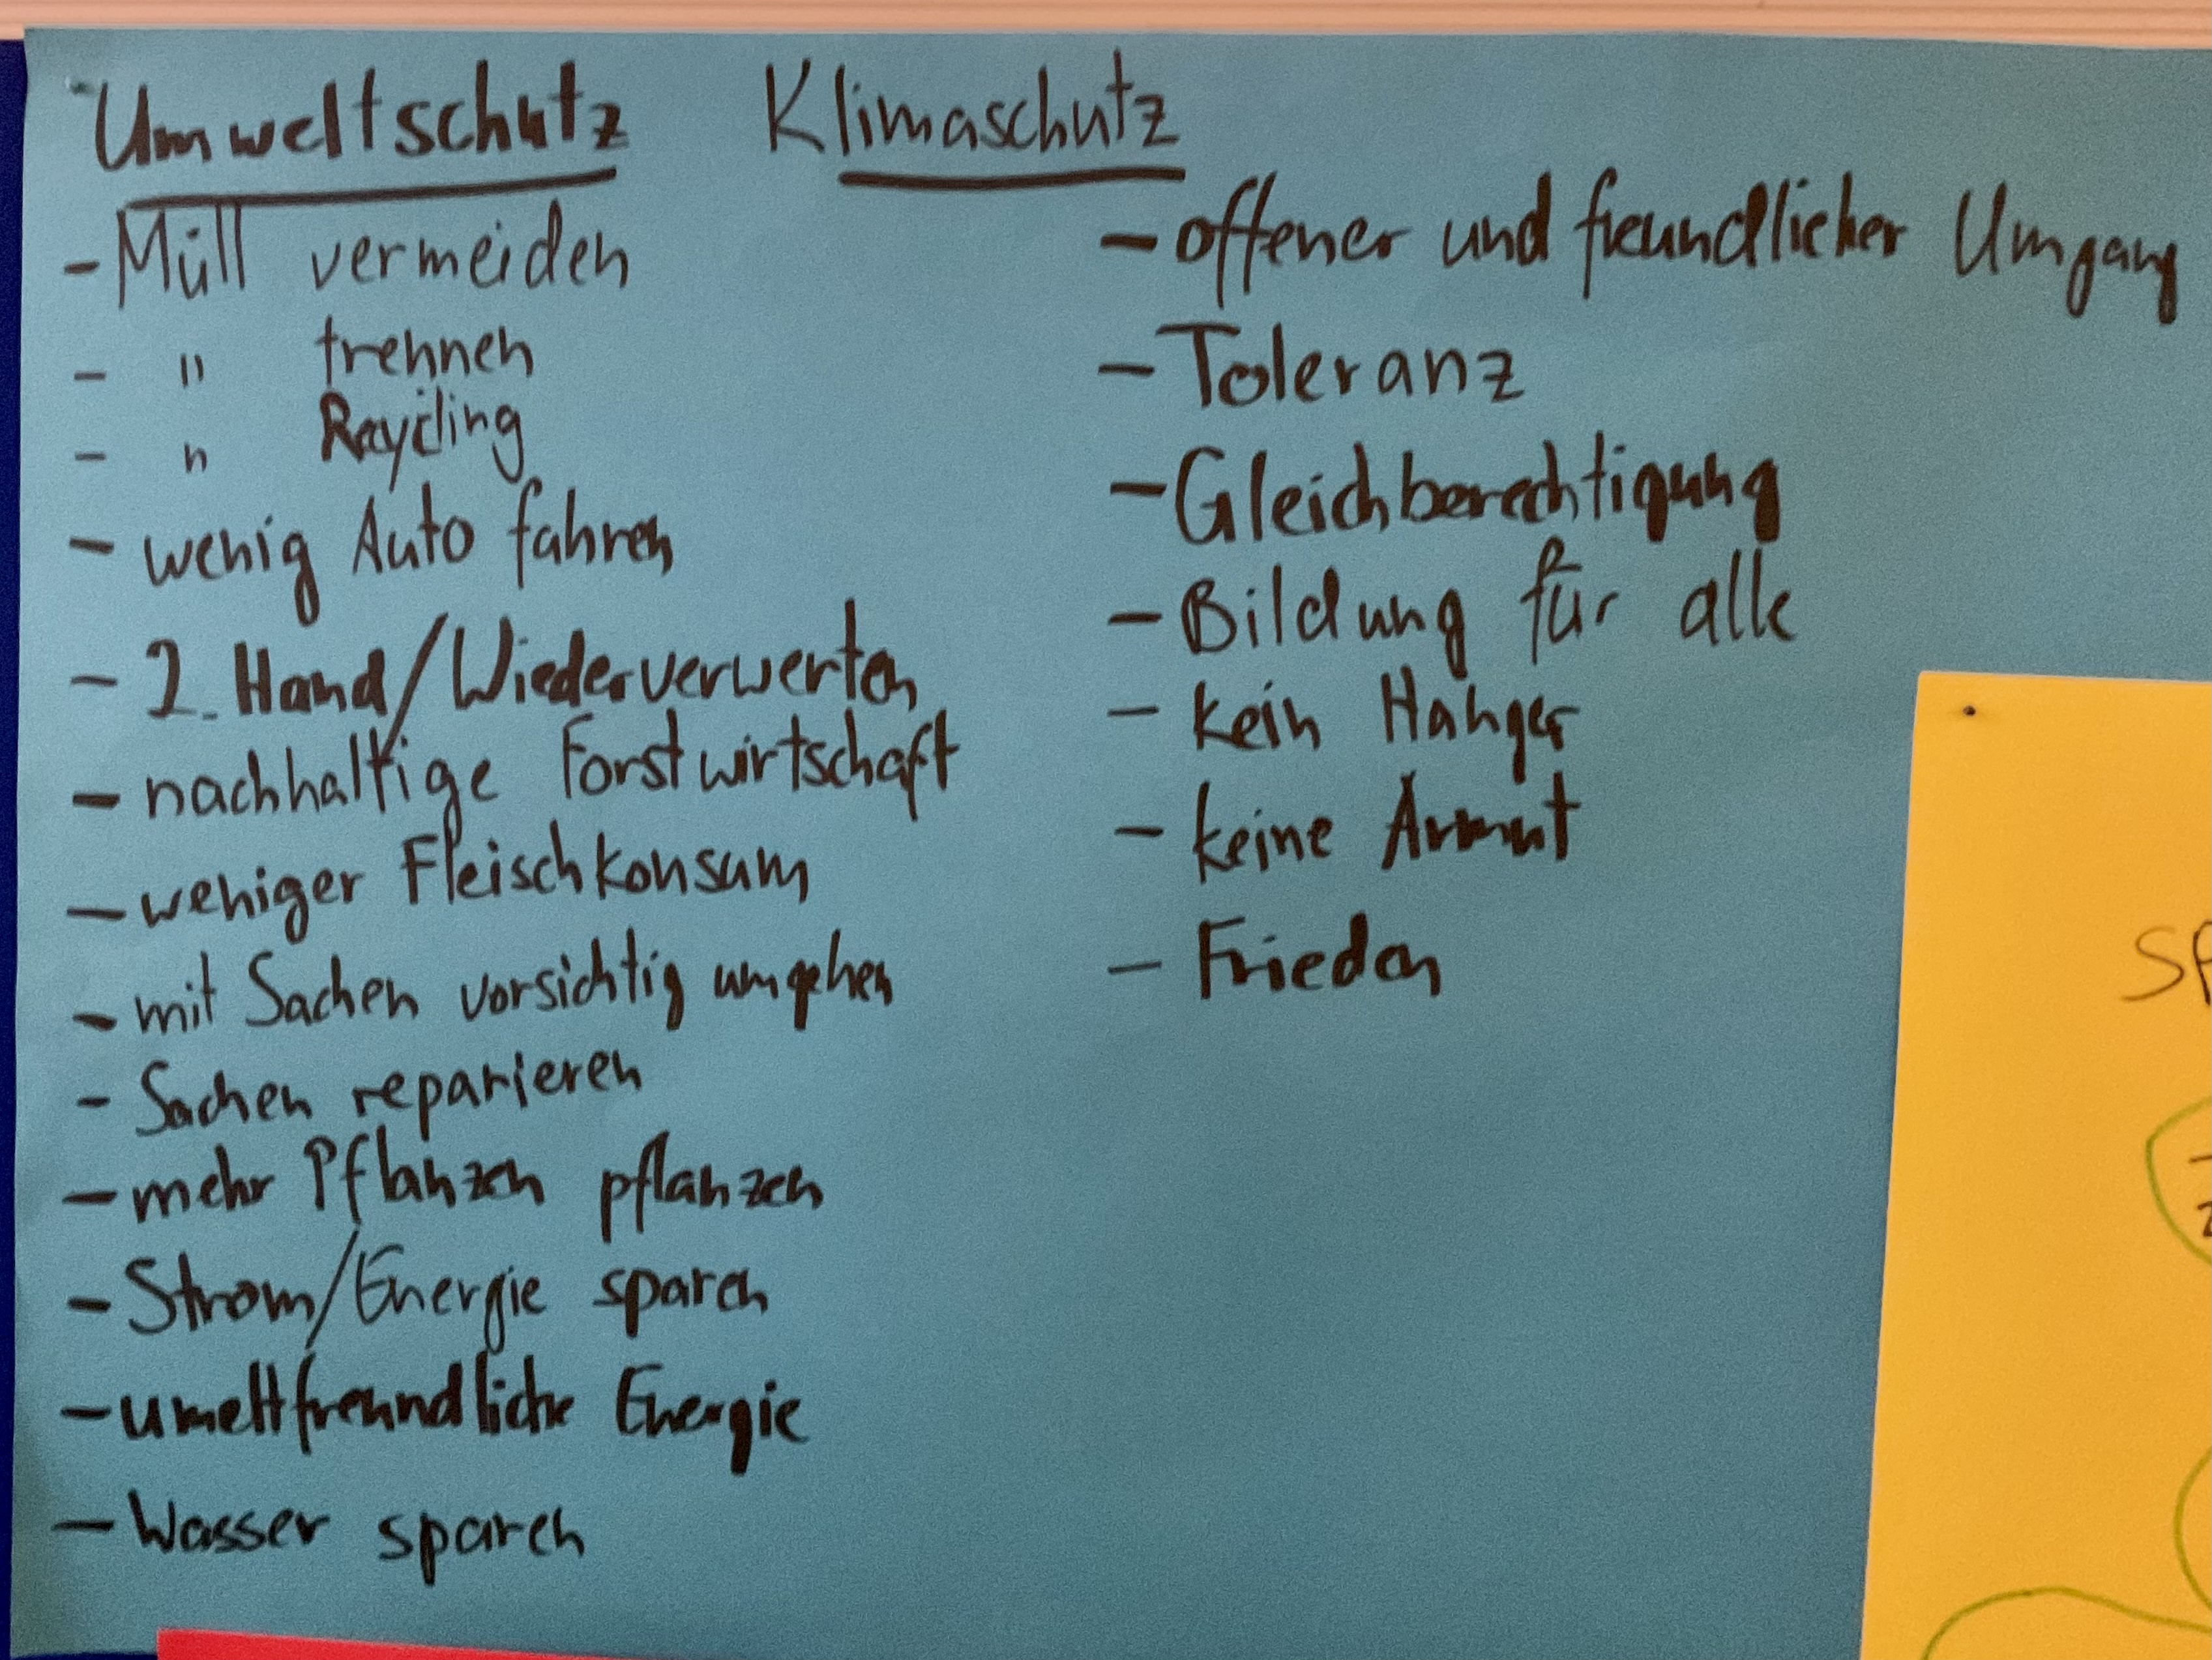 Umweltschutz Klimaschutz
- Müll vermeiden
- " trennen
- " Recycling
- wenig Auto fahren
- 2. Hand/Wiederverwerten
- nachhaltige Forstwirtschaft
- weniger Fleischkonsum
- mit Sachen vorsichtig umgehen
- Sachen reparieren
- mehr Pflanzen pflanzen
- Strom/Energie sparen
- umeltfreundliche Energie
- Wasser sparen
- offener und freundlicher Umgang
- Toleranz
- Gleichberechtigung
- Bildung für alle
- kein Hunger
- keine Armut
- Frieden